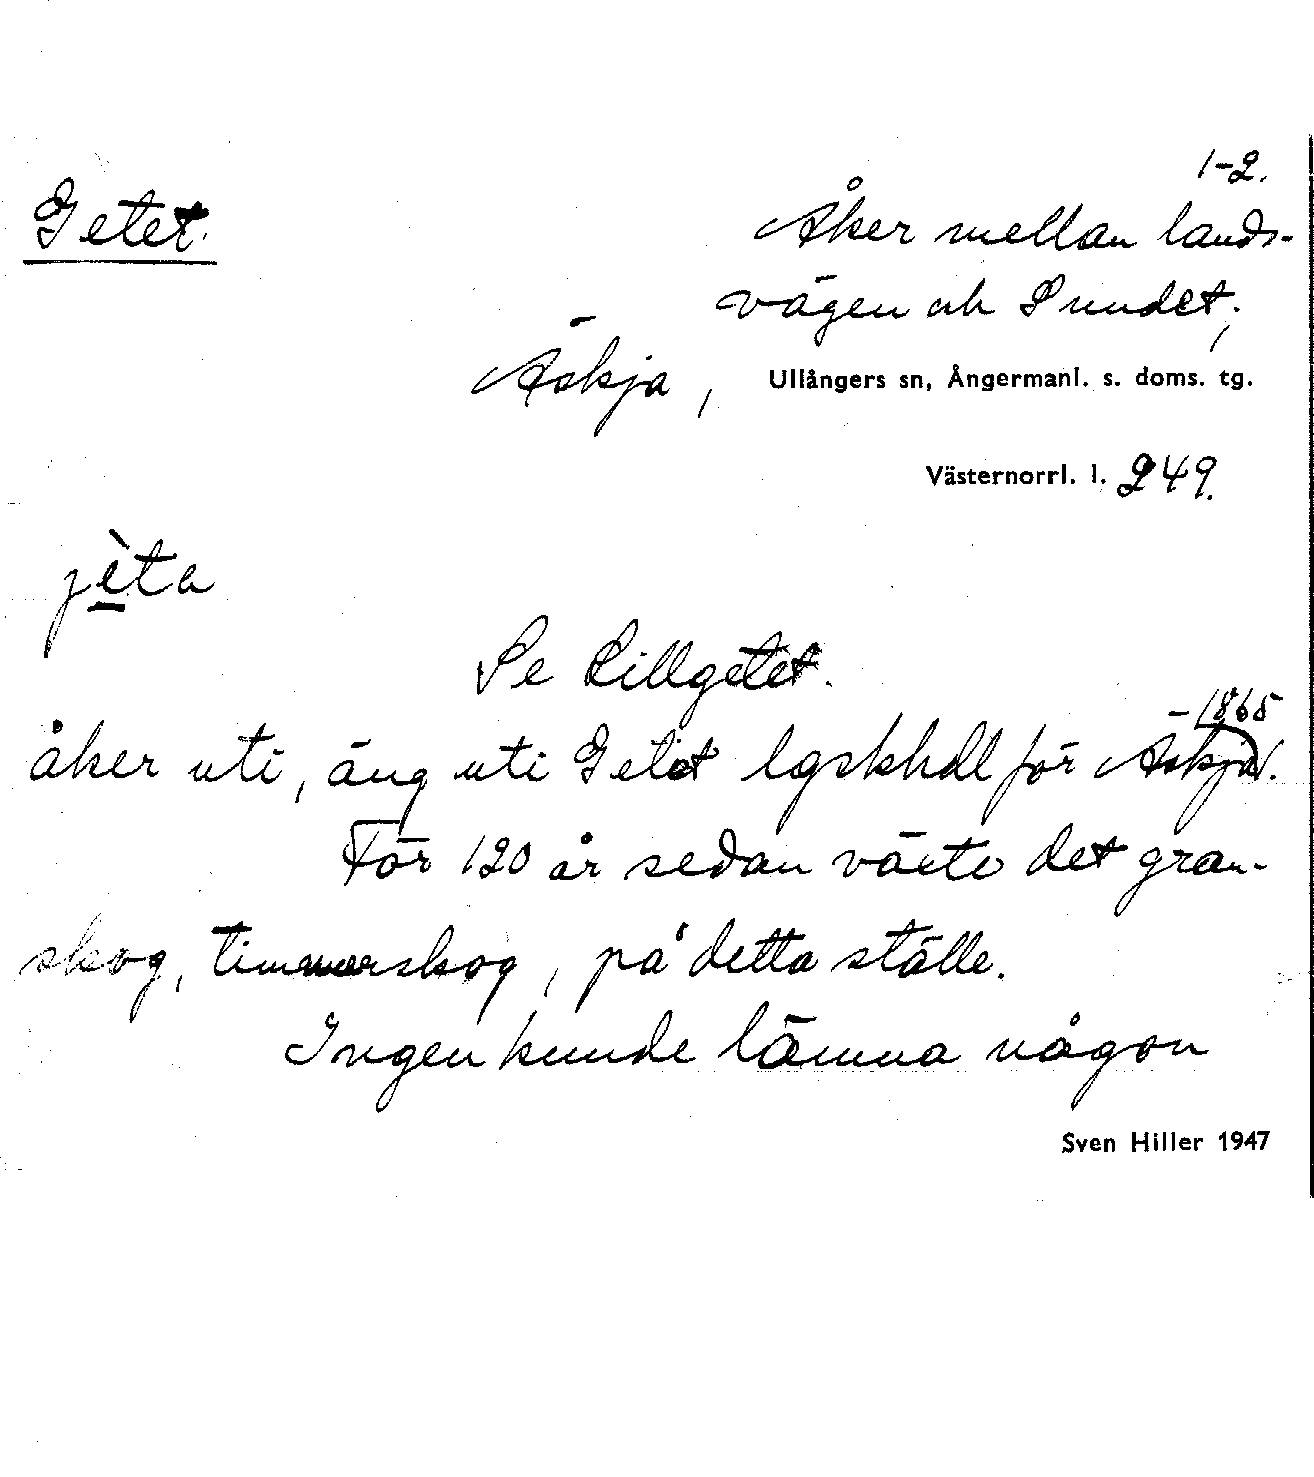 1-2.
Getet.
Åker mellan lands-
vägen och Sundet;
Äskja, Ullångers sn, Ångermanl. s. doms. tg.
Västernorrl. l. 249.
jèta
Se Lillgetet.
-1865
åker uti, äng uti Getet lgskhdl för Äskja.
För 120 år sedan växte det gran-
skog, timmerskog, på detta ställe.
Ingen kunde lämna någon
Sven Hiller 1947